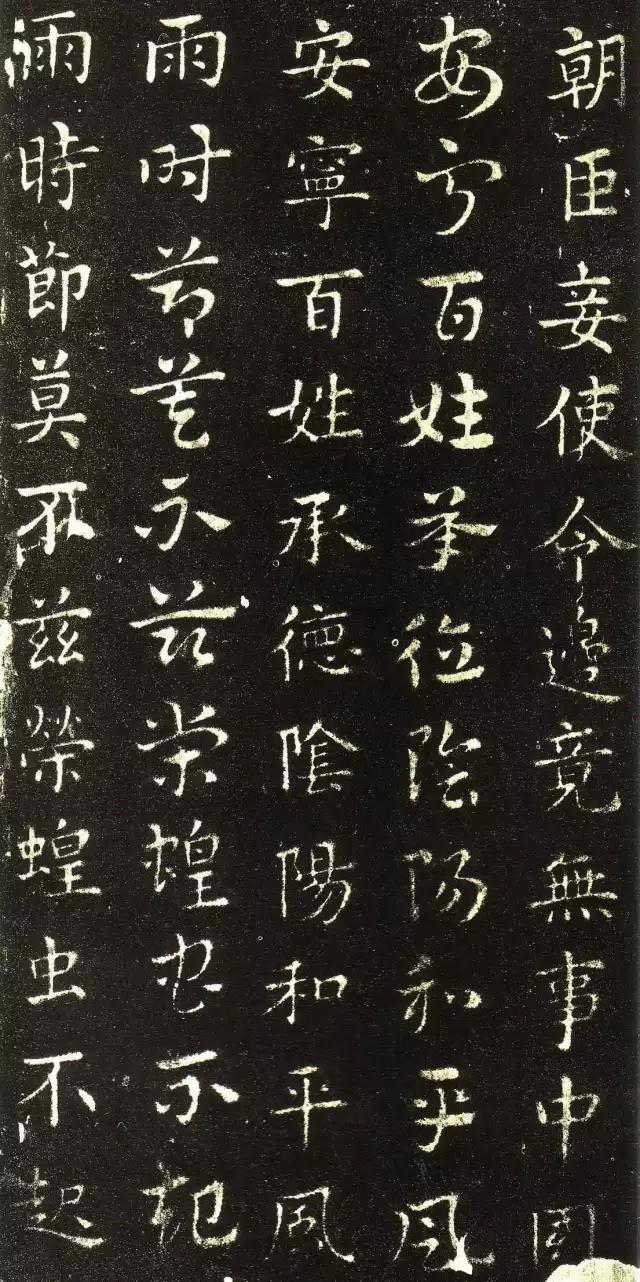 朝臣妾使令邊竟無事中國
安寧百姓承德陰陽和平風
安寧百姓承德陰陽和平風
雨时節莫不兹榮蝗虫不起
雨時節莫不兹榮蝗虫不起